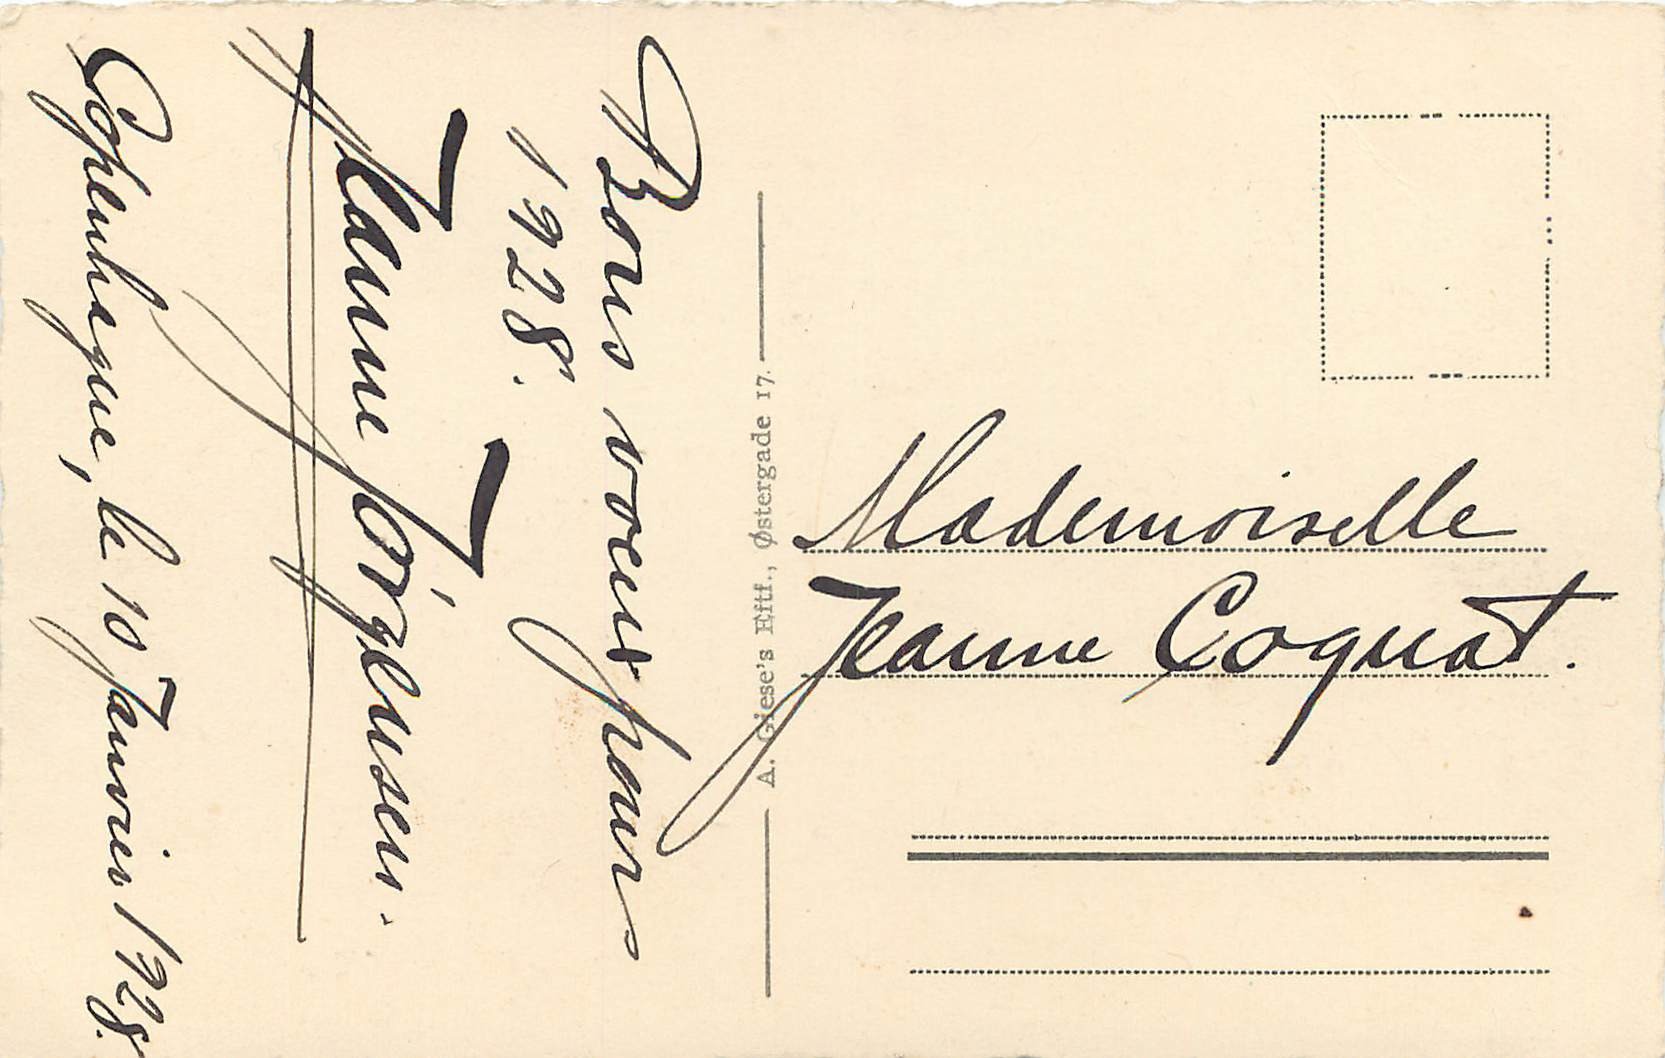 Bons voeux pour
1928.
Jeanne Jörgensen.
Copenhague, le 10 Janvier 1928.
A. Giese's Eftf., Østergade 17.
Mademoiselle
Jeanne Coquat.